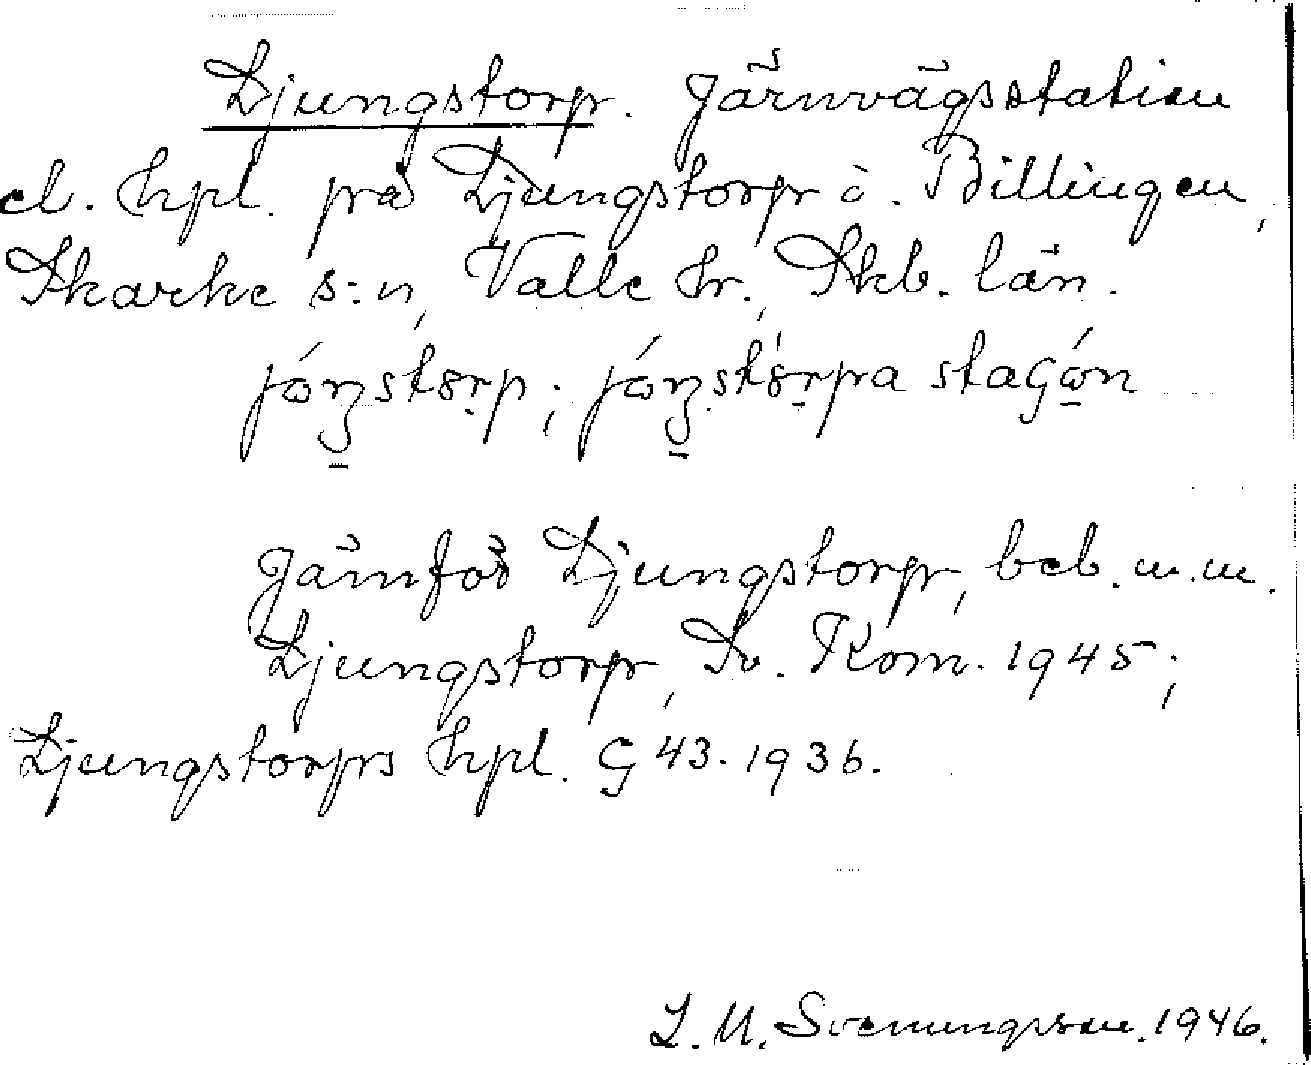 Ljungstorp. Järnvägsstation
el. hpl. på Ljungstorp å. Billingen,
Skarke s:n, Valle hr., Skb. län.
jóŋstørp; jóŋstørpa staGón
Jämför Ljungstorp, beb. m.m.
Ljungstorp, Sv. Kom. 1945;
Ljungstorps hpl. G 43. 1936.
L. M. Svenungsson. 1946.